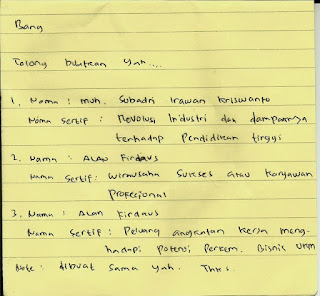 Bang
Tolong buatkan yah....
1. Nama : muh. Subadri Irawan Kriswanto
Nama sertif : Revolusi Industri dan dampaknya
terhadap Pendidikan tinggi
2. Nama : Alan Firdaus
Nama sertif : wirausaha sukses atau karyawan
Profesional
3. Nama : Alan Firdaus
Nama sertif : Peluang angkatan kerja meng-
hadapi potensi Perkem. Bisnis UKM
Note : dibuat sama yah. Thks.